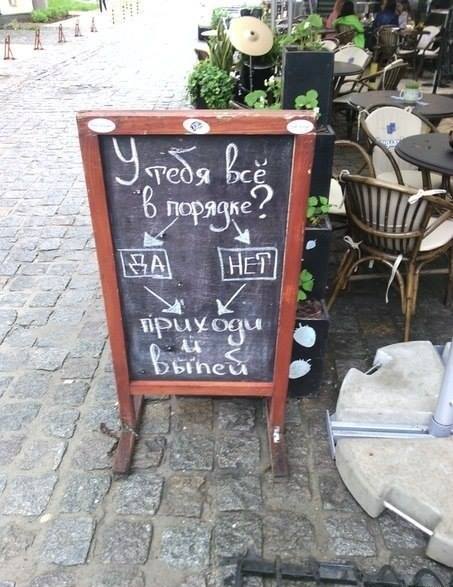 У тебя всё
в порядке?
ДА НЕТ
приходи
и
выпей